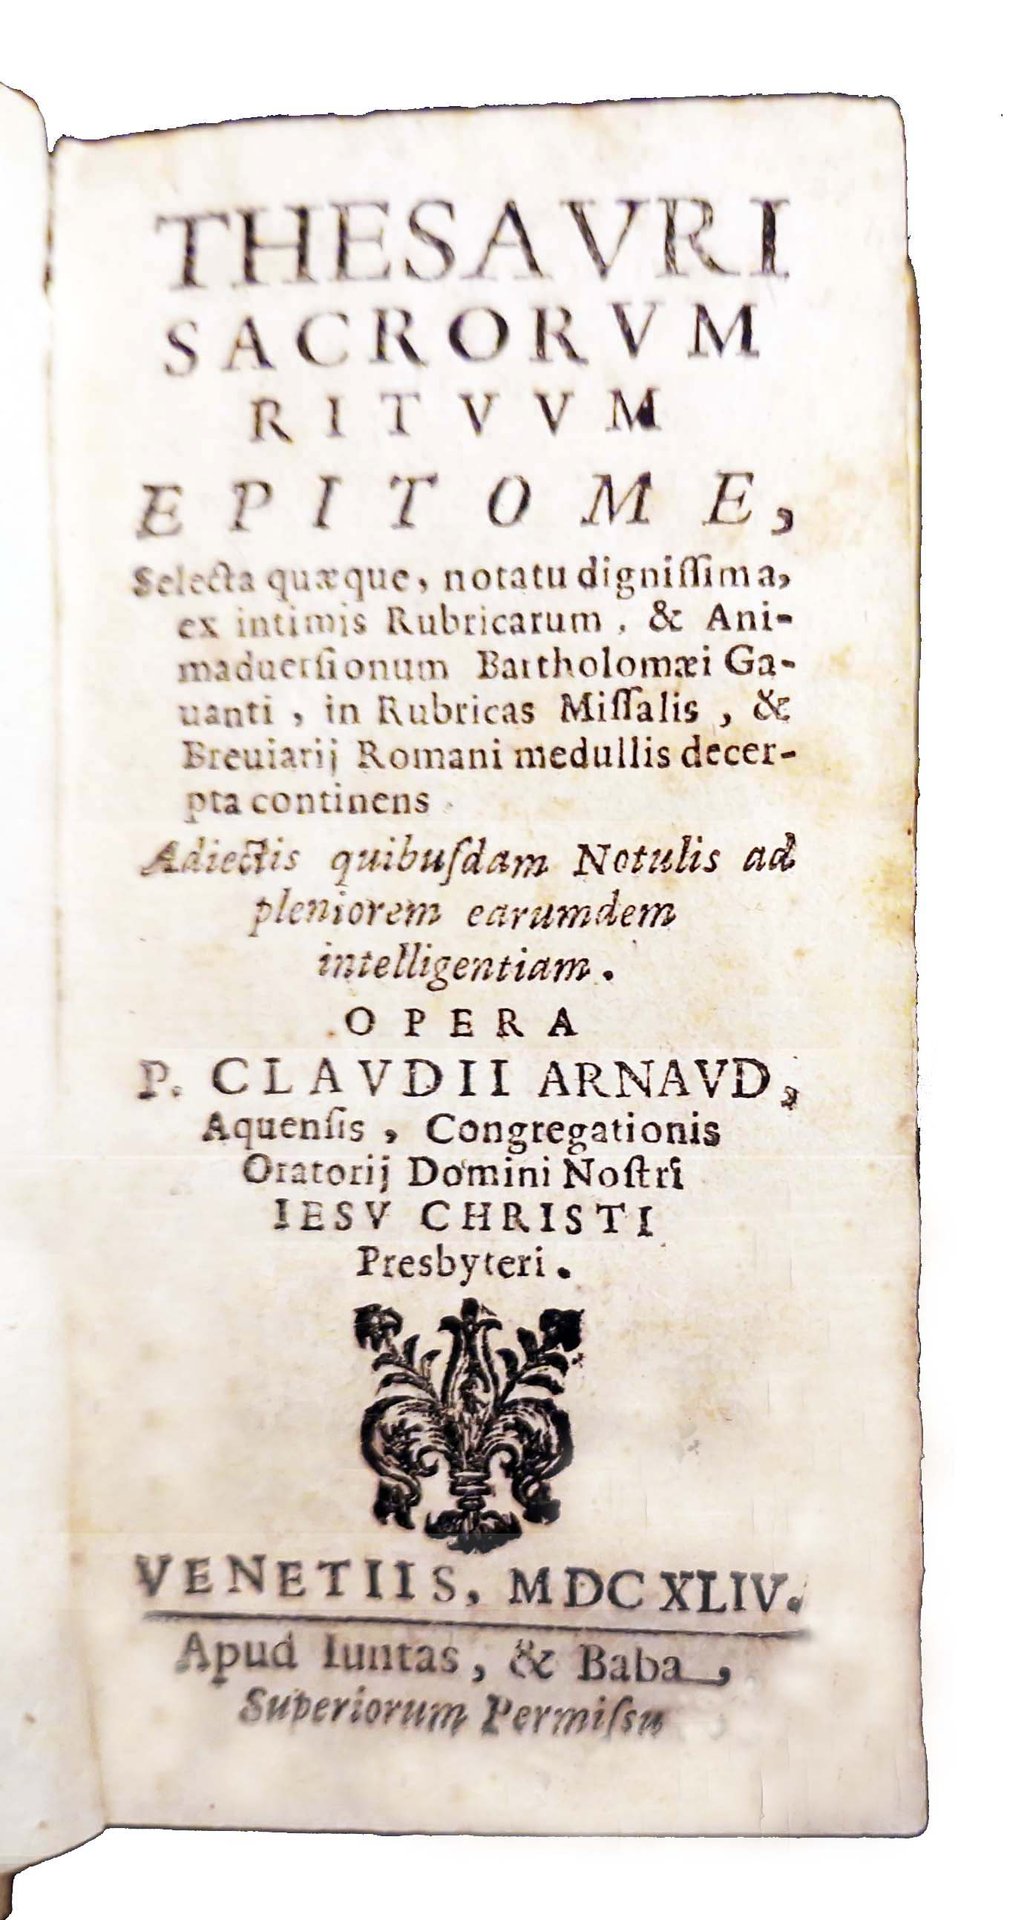 THESAVRI
SACRORVM
RITVVM
EPITOME,
Selecta quæque, notatu digniſſima,
ex intimis Rubricarum, & Ani-
maduerſionum Bartholomæi Ga-
uanti, in Rubricas Miſſalis, &
Breuiarij Romani medullis decer-
pta continens.
Adiectis quibuſdam Notulis ad
pleniorem earumdem
intelligentiam.
OPERA
P. CLAVDII ARNAVD,
Aquenſis, Congregationis
Oratorij Domini Noſtri
IESV CHRISTI
Presbyteri.
VENETIIS, MDCXLIV.
Apud Iuntas, & Baba,
Superiorum Permiſsu